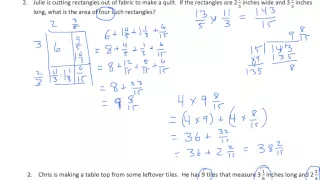 2. Julie is cutting rectangles out of fabric to make a quilt. If the rectangles are 2 3/5 inches wide and 3 2/3 inches
long, what is the area of four such rectangles?
2 3/5
3 6
2/3
6 + 4/3 + 9/5 + 6/15
= 8 + 23/15
= 9 8/15
13/5 × 11/3 = 143/15
9 8/15
15 √143
135
8
4 × 9 8/15
= (4 × 9) + (4 × 8/15)
= 36 + 32/15
= 36 + 2 2/15 = 38 2/15
2. Chris is making a table top from some leftover tiles. He has 9 tiles that measure 3 1/8 inches long and 2 3/4